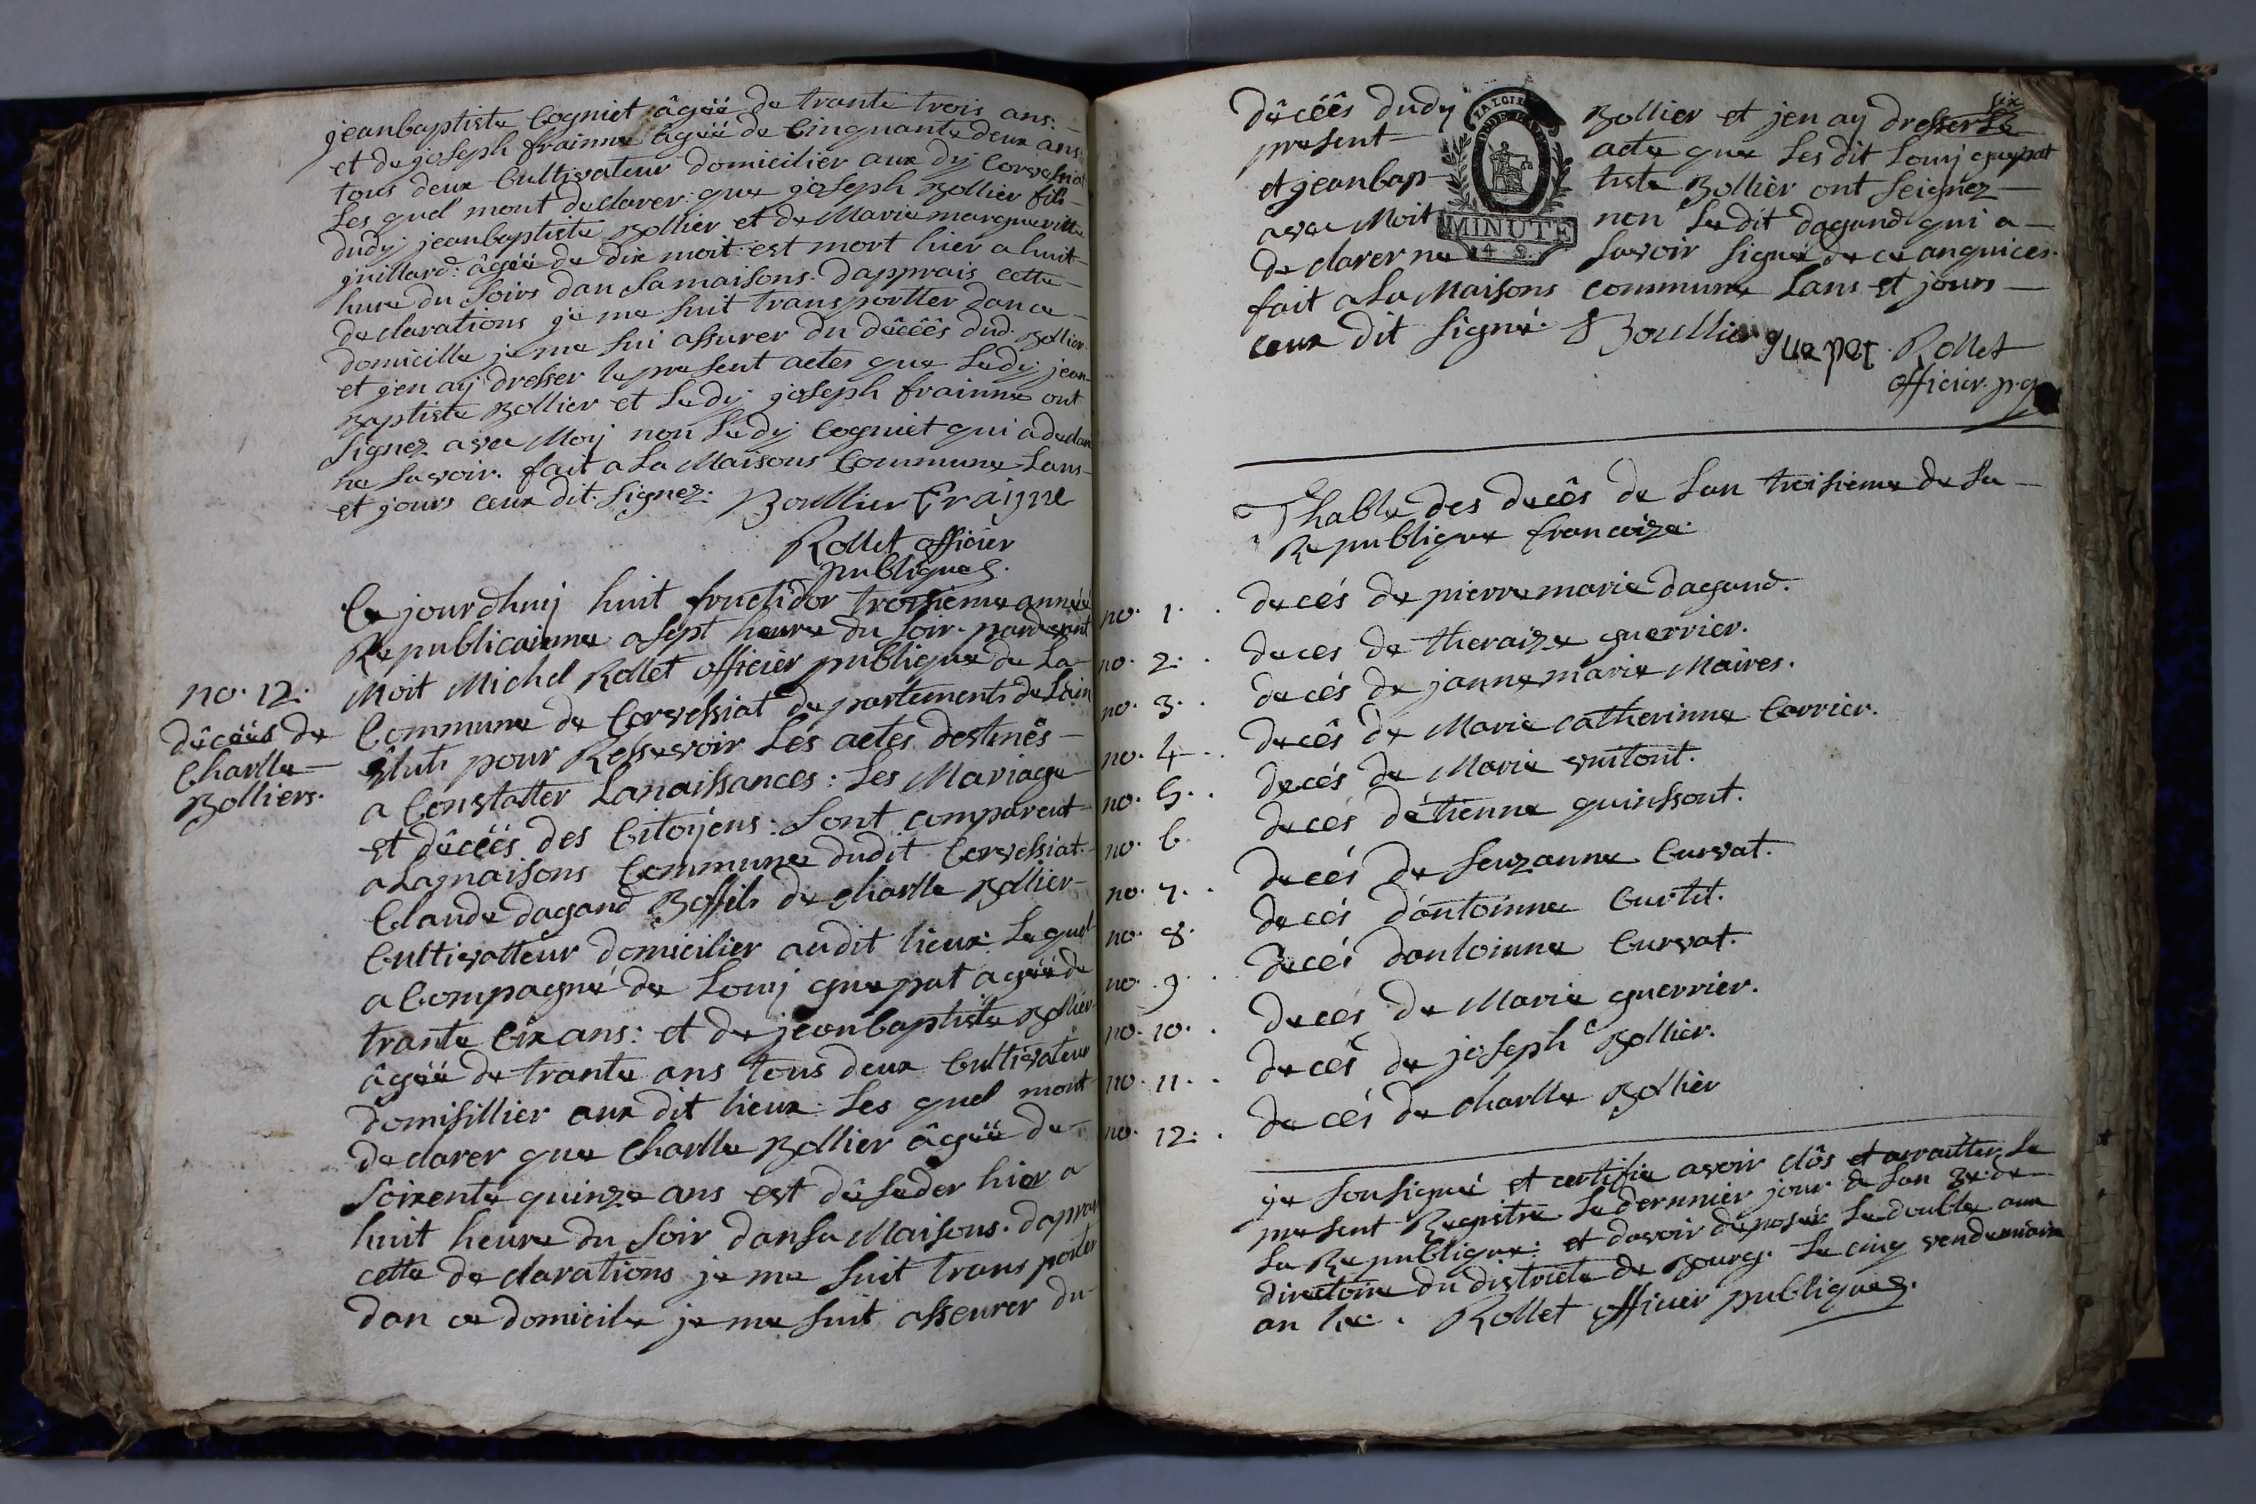 jeanbaptiste Cogniet âgéé de trante trois ans:
et de joseph frainne âgéé de Cinquante deux ans
tous deux Cultivateur domicilier aux dij Corvessiat
Les quel mont declarer: que joseph Bollier fils
dudij jeanbaptiste Bollier et de Marie margueritte
guillard: âgéé de dix moit: est mort hier a huit
hure du Soirs dan Samaisons. dapprais cette
declarations je me Suit transportter dan ce
domicille je me Sui assurer du dêcêês dud. Bollier
et jen aij dresser le present actes que Ledij jean
Baptiste Bollier et Ledij joseph frainne ont
Signez avec Moij non Ledij Cogniet qui a declar
ne Savoir. fait a La Maisons Commune Lans
et jours ceux dit. Signez: Boullier Fraigne
Rollet officier
publiques.
Ce jourdhuij huit fructidor troisieme année
Republicainne a Sept heure du Soir. pardevant
Moit Michel Rollet officier publique de La
no. 12.
dêcéés de
Charlle
Bolliers.
Commune de Corvessiat departements de Lain
êluts pour Ressevoir Lés actes destinés
a Constatter Lanaissances: Les Mariage
et dêcéés des Citoijens: Sont comparent
a Lamaisons Commune dudit Corvessiat.
Claude dagand Boffils de charlle Bollier
Cultivatteur domicilier audit lieux: Le quel
a Compagné de Louij guepat agéé de
trante Cix ans: et de jeanbaptiste Bollier
âgéé de trante ans tous deux Cultivateur
domisillier aux dit lieux: Les quel mont
declarer que Charlle Bollier âgéé de
Soixente quinze ans est dêseder hier a
huit heure du Soir dansa Maisons. daprai
cette declarations je me Suit trans porter
dan ce domicile je me Suit asseurer du
dêcéês dudij Bollier et jen aij dresser Le
present acte que Les dit Louij guepat
et jeanbap- tiste Bollier ont Seignez
avec Moit non Le dit dagand qui a
declarer ne Savoir Signé de ce anquices.
fait a La Maisons commune Lans et jours
ceux dit Signé. Boullier guepat Rollet
officier. p.q
LA LOI
MINUTE
Thable des decês de Lan troisieme de La
Republique francoize.
no. 1. decés de pierre marie dagand.
no. 2. deces de theraize guerrier.
no. 3. decés de jannemarie Maires.
no. 4. decês de Marie catherinne Carrier.
no. 5. decés de Marie vuitont.
no. 6. decés détienne quinssont.
no. 7. decés de Seuzanne Curvat.
no. 8. decés dántoinne Curtit.
no. 9. decés dantoinne Curvat.
no. 10. decés de Marie guerrier.
no. 11. decés de joseph Bollier.
no. 12. decés de charlle Bollier
je Sousigné et certifie avoir clôs et arraitter Le
present Registre Le dernnier jour de Lan 3e. de
La Republique: et davoir déposéé Le double aux
directoire du districte de Bourg. Le cinq vendemiaire
an 4e. Rollet officier publiques.